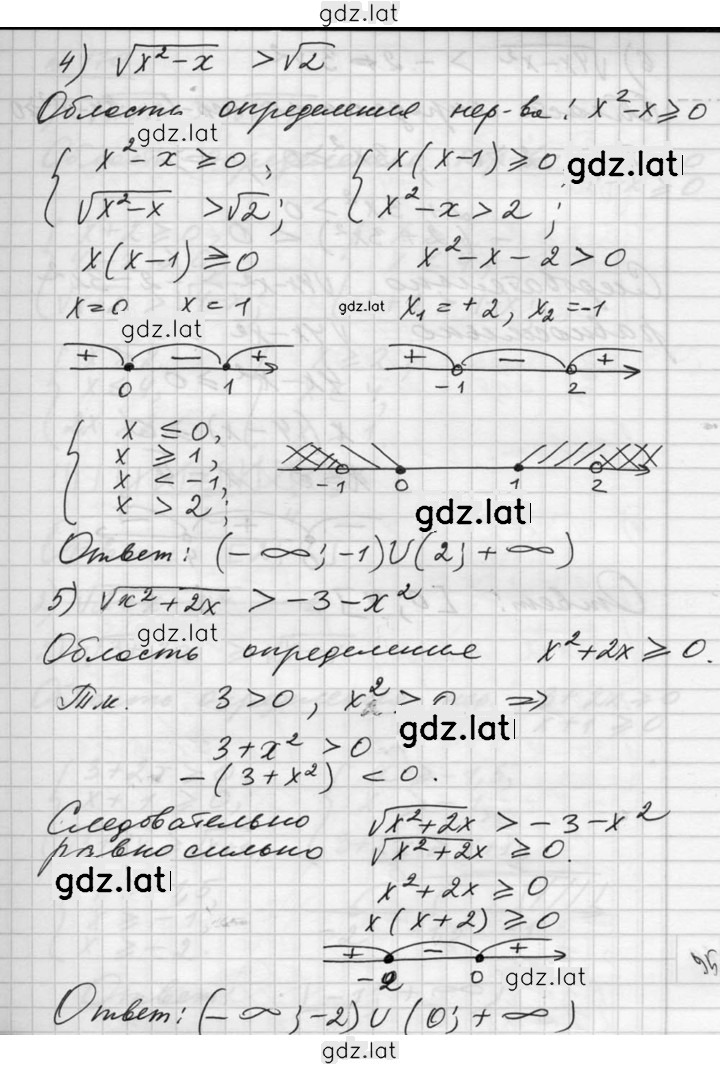 gdz.lat
4) √(x² - x) > √2
Область определения нер-ва: x² - x ≥ 0
gdz.lat
{ x² - x ≥ 0, { x(x-1) ≥ 0 gdz.lat
√(x² - x) > √2; x² - x > 2;
x(x-1) ≥ 0 x² - x - 2 > 0
x = 0 x = 1 gdz.lat x₁ = +2, x₂ = -1
gdz.lat
+ − + + − +
0 1 -1 2
{ x ≤ 0,
x ≥ 1,
x < -1,
x > 2;
-1 0 1 2
gdz.lat
Ответ: (-∞; -1)∪(2; +∞)
5) √(x² + 2x) > -3 - x²
gdz.lat
Область определения x² + 2x ≥ 0.
Т.к. 3 > 0, x² > 0 ⇒
gdz.lat
3 + x² > 0
-(3 + x²) < 0.
Следовательно √(x² + 2x) > -3 - x²
равносильно √(x² + 2x) ≥ 0.
gdz.lat
x² + 2x ≥ 0
x(x + 2) ≥ 0
+ − +
-2 0 gdz.lat
Ответ: (-∞; -2)∪(0; +∞)
gdz.lat